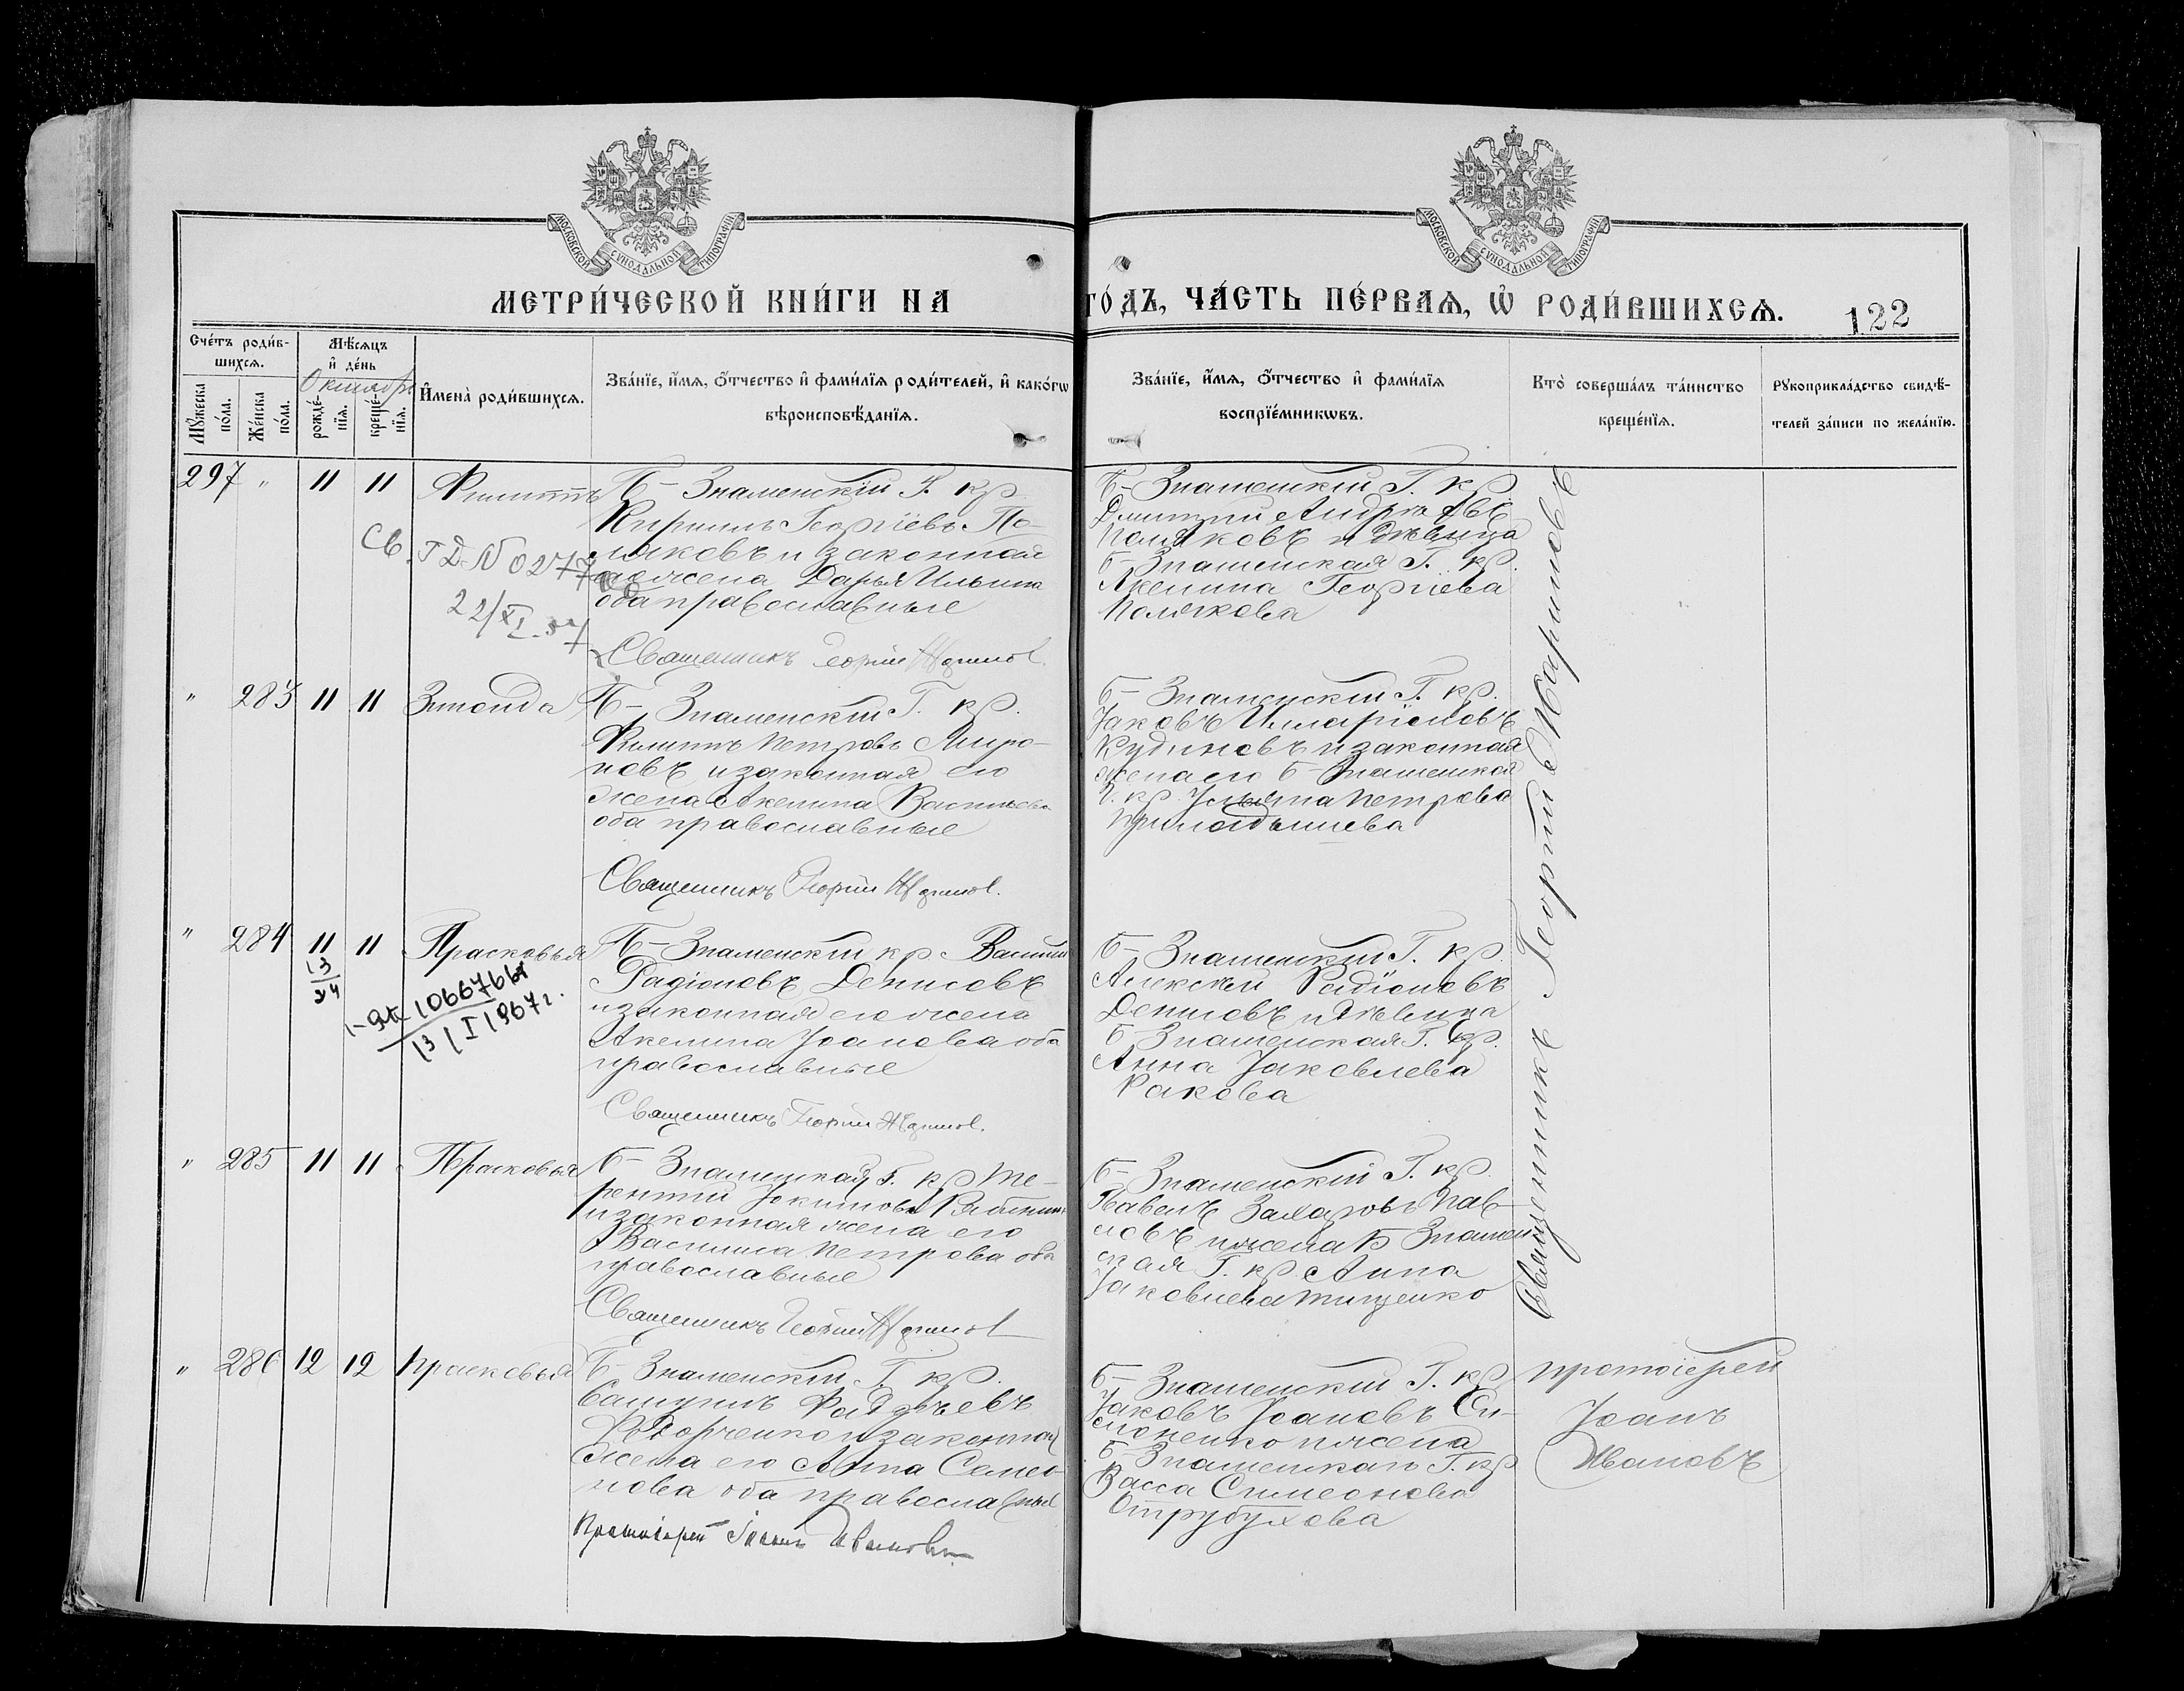 МОСКОВСКОЙ СѴНОДАЛЬНОЙ ТИПОГРАФІИ
МОСКОВСКОЙ СѴНОДАЛЬНОЙ ТИПОГРАФІИ
МЕТРИ́ЧЕСКОЙ КНИ́ГИ НА
ГО́ДЪ, ЧА́СТЬ ПЕ́РВАѦ, Ѡ҆ РОДИ́ВШИХСѦ.
122
Сче́тъ роди́в-
шихсѧ.
Мꙋ́жеска
по́ла.
Же́нска
по́ла.
Мѣ́сѧцъ
и҆ де́нь
Октябрь
рожде́-
нїѧ.
креще́-
нїѧ.
И҆мена̀ роди́вшихсѧ.
Зва́нїе, и҆́мѧ, ѻ҆́тчество и҆ фами́лїѧ роди́телей, и҆ како́гѡ
вѣроисповѣ́данїѧ.
Зва́нїе, и҆́мѧ, ѻ҆́тчество и҆ фами́лїѧ
воспрїе́мникѡвъ.
Кто̀ соверша́лъ та́инство
креще́нїѧ.
Рꙋкоприкла́дство свидѣ́-
телей за́писи по жела́нїю.
297 " 11 11 Филиппъ
Б- Знаменскій Г. кр.
Кириллъ Георгіевъ По-
ляковъ и законная
его жена Дарья Ильина
оба православные
Священникъ Георгій
Св. ГД № 0277
22/XI-57
Б- Знаменскій Г. кр.
Дмитрій Андреевъ
Поляковъ и дѣвица
Б- Знаменская Г. кр.
Акелина Георгіева
Полякова
Священникъ Георгій
" 283 11 11 Зинаида
Б- Знаменскій Г. кр.
Филиппъ Петровъ Миро-
новъ и законная его
жена Акелина Васильева
оба православные
Священникъ Георгій
Б- Знаменскій Г. кр.
Іаковъ Илларіоновъ
Кудиновъ и законная
жена его Б- Знаменская
Г. кр. Ульяна Петрова
" 284 11 11 Прасковья
13
24
13/I 1967 г.
Б- Знаменскій кр. Василій
Радіоновъ Денисовъ
и законная его жена
Акелина Іоанова оба
православные
Священникъ Георгій
Б- Знаменскій Г. кр.
Алексѣй Радіоновъ
Денисовъ и дѣвица
Б- Знаменская Г. кр.
Анна Іаковлева
Ракова
" 285 11 11 Прасковья
Б- Знаменскій Г. кр Те-
рентій Іокимовъ
и законная жена его
Василиса Петрова оба
православные
Священникъ Георгій
Б- Знаменскій Г. кр.
Павелъ Захаровъ Пав-
ловъ и жена Б Знамен
ская Г. кр Анна
Іаковлева Тищенко
" 286 12 12 Прасковья
Б- Знаменскій Г. кр.
Самуилъ Фадѣевъ
Федорченко и законная
жена его Анна Семео-
нова оба православные
Протоіерей Іоаннъ Ивановъ
Б- Знаменскій Г. кр
Іаковъ Іоановъ Си-
моненко и жена
Б- Знаменская Г. кр
Васса Симеонова
Отрубухова
протоіерей
Іоанъ
Ивановъ